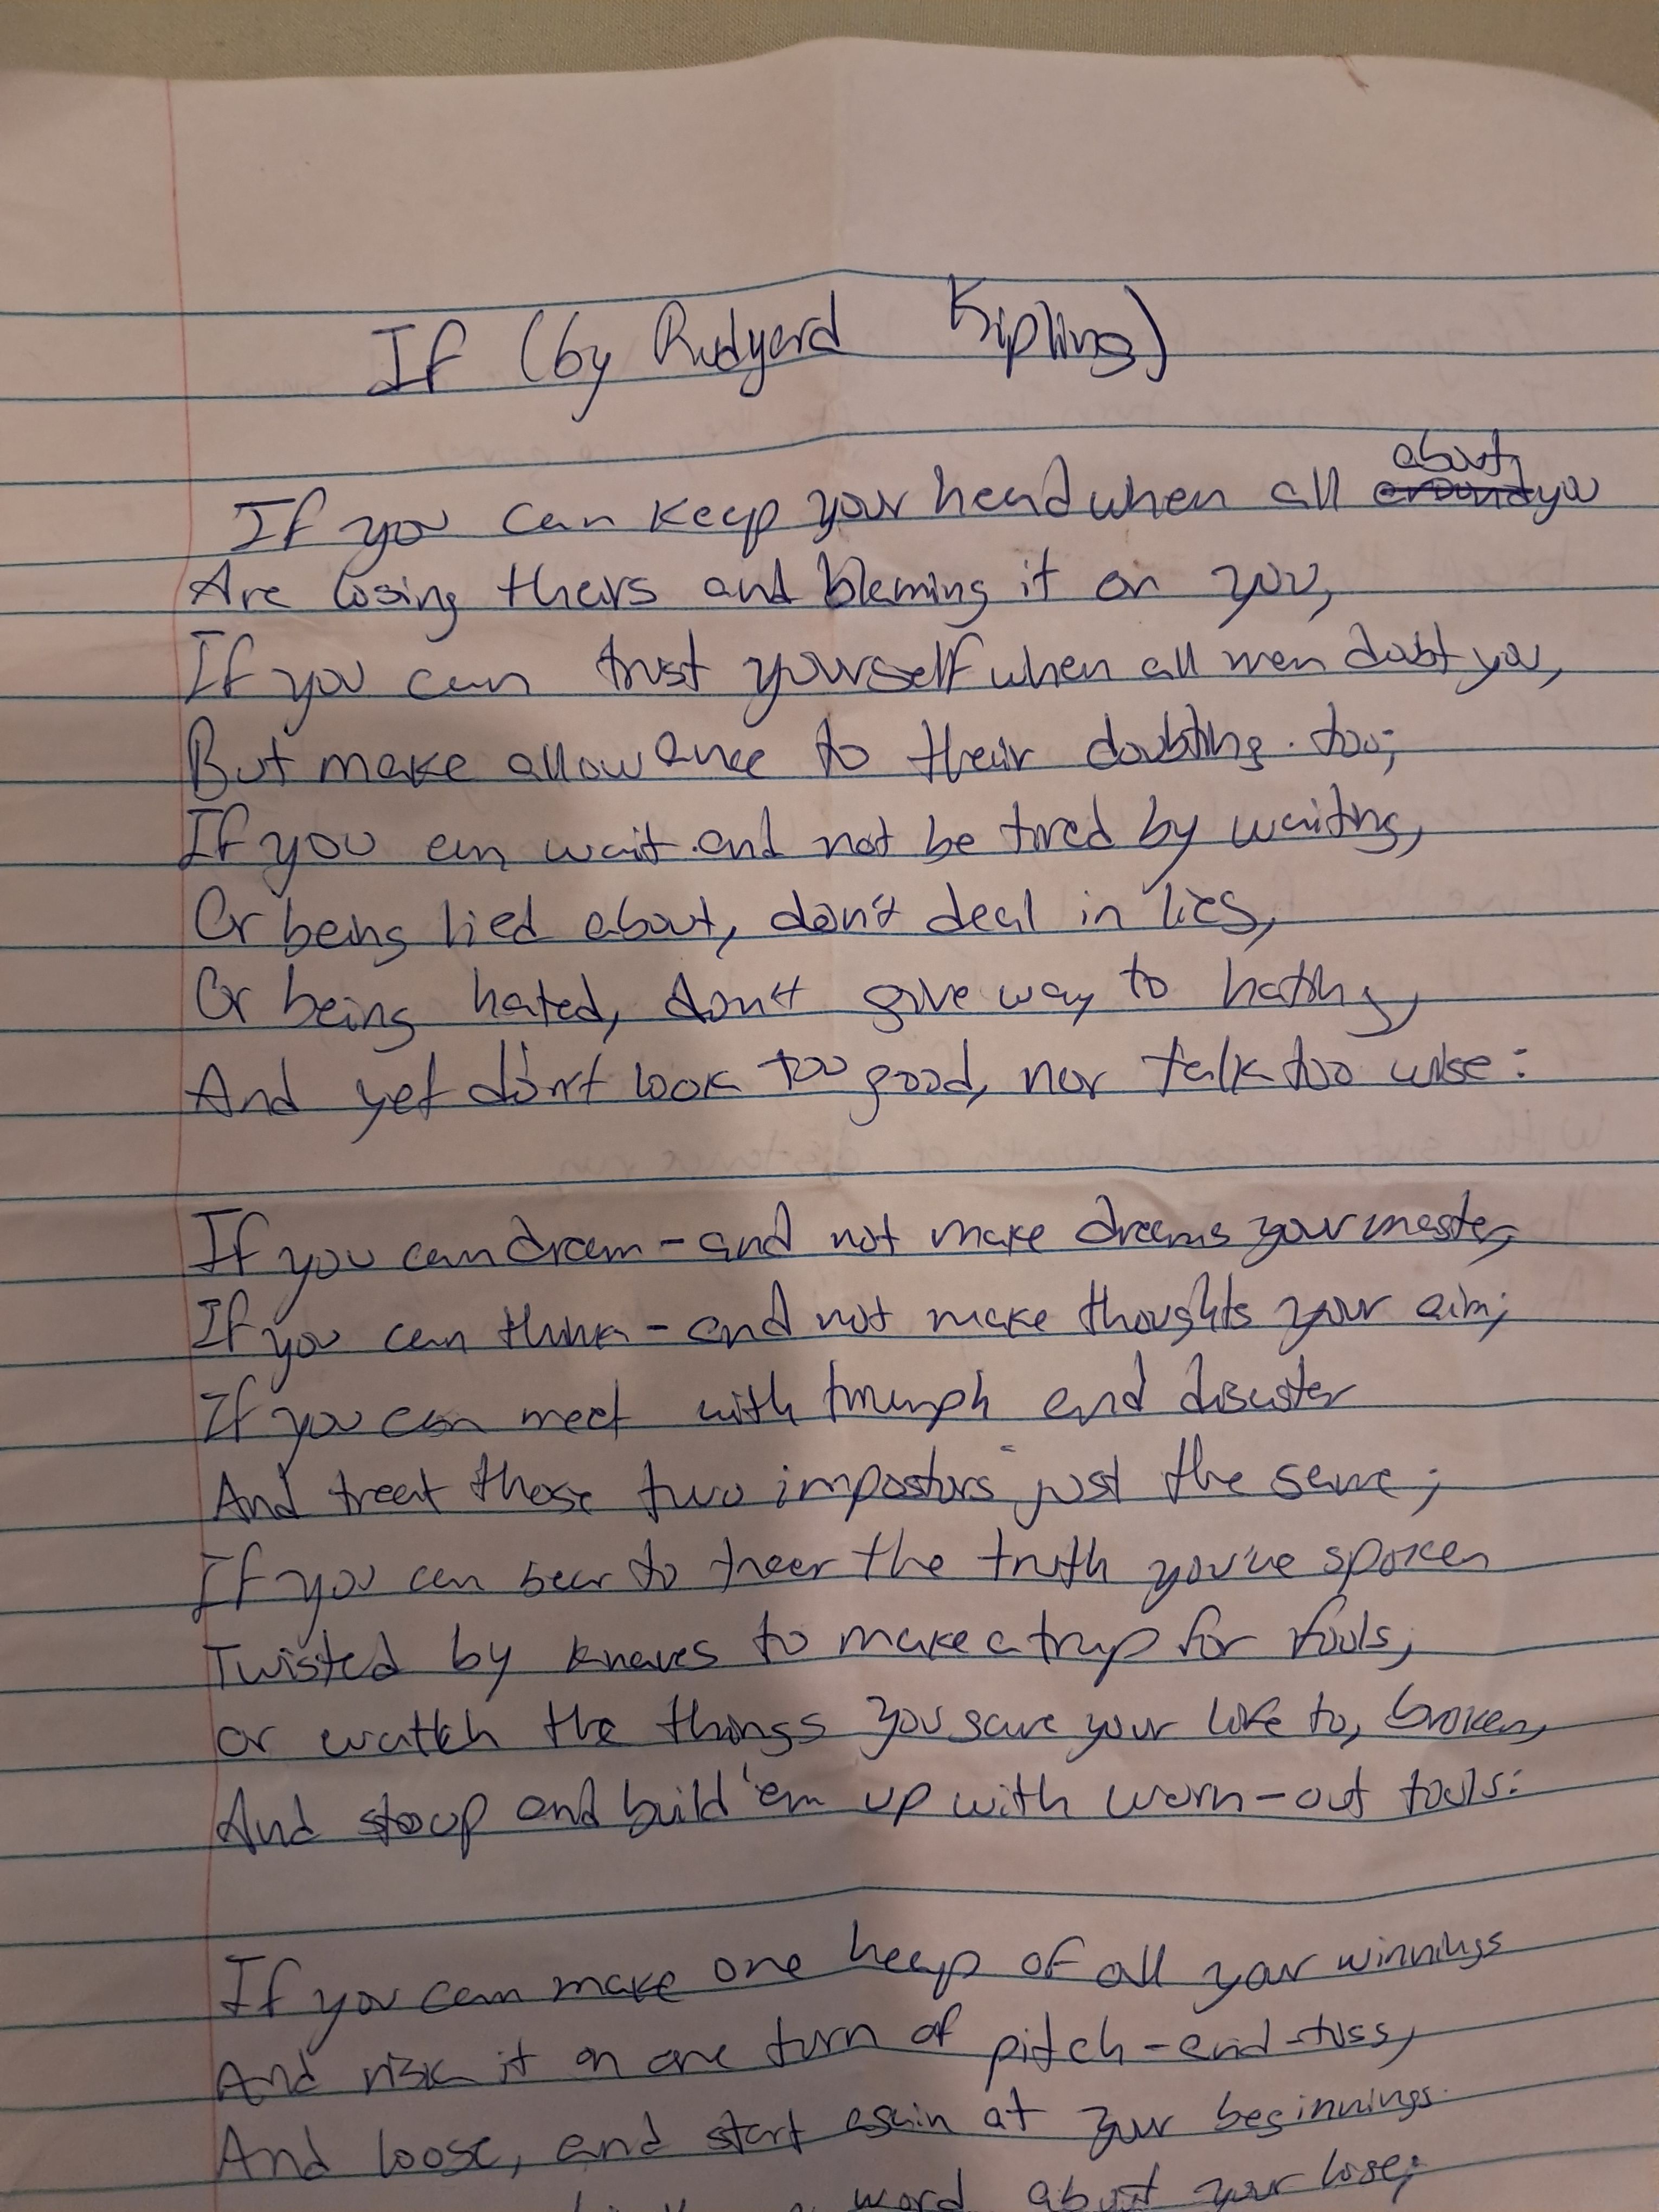 If (by Rudyard Kipling)
If you can keep your head when all about you
Are losing theirs and blaming it on you,
If you can trust yourself when all men doubt you,
But make allowance to their doubting too;
If you can wait and not be tired by waiting,
Or being lied about, don't deal in lies,
Or being hated, don't give way to hating,
And yet don't look too good, nor talk too wise:
If you can dream - and not make dreams your master,
If you can think - and not make thoughts your aim;
If you can meet with triumph and disaster
And treat those two impostors just the same;
If you can bear to hear the truth you've spoken
Twisted by knaves to make a trap for fools,
or watch the things you gave your life to, broken,
And stoop and build 'em up with worn-out tools:
If you can make one heap of all your winnings
And risk it on one turn of pitch-and-toss,
And loose, and start again at your beginnings
word about your lose;